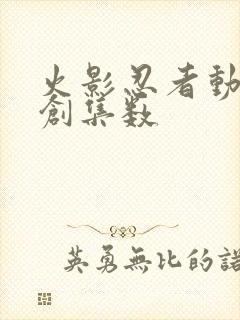 火影忍者動
創集数
英勇無比的諾